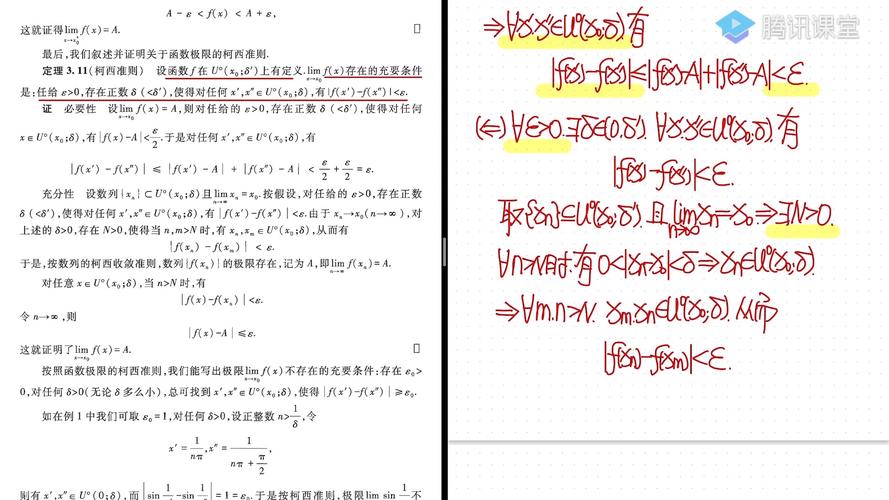 A − ε < f(x) < A + ε,
这就证得lim f(x) = A.
x→x₀
最后,我们叙述并证明关于函数极限的柯西准则.
定理 3.11(柯西准则) 设函数 f 在 U°(x₀;δ′)上有定义. lim f(x)存在的充要条件
x→x₀
是:任给 ε>0,存在正数 δ(<δ′),使得对任何 x′,x″∈U°(x₀;δ),有|f(x′)−f(x″)|<ε.
证 必要性 设lim f(x) = A,则对任给的 ε>0,存在正数 δ(<δ′),使得对任何
x→x₀
x∈U°(x₀;δ),有|f(x)−A|<ε/2.于是对任何 x′,x″∈U°(x₀;δ),有
|f(x′) − f(x″)| ≤ |f(x′) − A| + |f(x″) − A| < ε/2 + ε/2 = ε.
充分性 设数列{xₙ}⊂U°(x₀;δ)且lim xₙ = x₀.按假设,对任给的 ε>0,存在正数
n→∞
δ(<δ′),使得对任何 x′,x″∈U°(x₀;δ),有|f(x′)−f(x″)|<ε.由于 xₙ→x₀(n→∞),对
上述的 δ>0,存在 N>0,使得当 n,m>N 时,有 xₙ,xₘ∈U°(x₀;δ),从而有
|f(xₙ) − f(xₘ)| < ε.
于是,按数列的柯西收敛准则,数列{f(xₙ)}的极限存在,记为 A,即lim f(xₙ) = A.
n→∞
对任意 x∈U°(x₀;δ),当 n>N 时,有
|f(x)−f(xₙ)|<ε.
令 n→∞,则
|f(x)−A|≤ε.
这就证明了lim f(x) = A.
x→x₀
按照函数极限的柯西准则,我们能写出极限lim f(x)不存在的充要条件:存在 ε₀>
x→x₀
0,对任何 δ>0(无论 δ 多么小),总可找到 x′,x″∈U°(x₀;δ),使得|f(x′)−f(x″)|≥ε₀.
如在例 1 中我们可取 ε₀=1,对任何 δ>0,设正整数 n>1/δ,令
x′ = 1/nπ, x″ = 1/(nπ + π/2),
则有 x′,x″∈U°(0;δ),而|sin 1/x′ − sin 1/x″| = 1 = ε₀.于是按柯西准则,极限lim sin 1/x 不
腾讯课堂
⇒∀x′.x″∈U°(x₀;δ).有
|f(x′)−f(x″)|≤|f(x′)−A|+|f(x″)−A|<ε.
(⇐)∀ε>0.∃δ∈(0.δ′).∀x′.x″∈U°(x₀;δ).有
|f(x′)−f(x″)|<ε.
取{xₙ}⊆U°(x₀;δ′).且lim xₙ=x₀⇒∃N>0.
n→∞
∀n>N时.有0<|xₙ−x₀|<δ⇒xₙ∈U°(x₀;δ).
⇒∀m.n>N. xₘ.xₙ∈U°(x₀;δ).从而
|f(xₙ)−f(xₘ)|<ε.